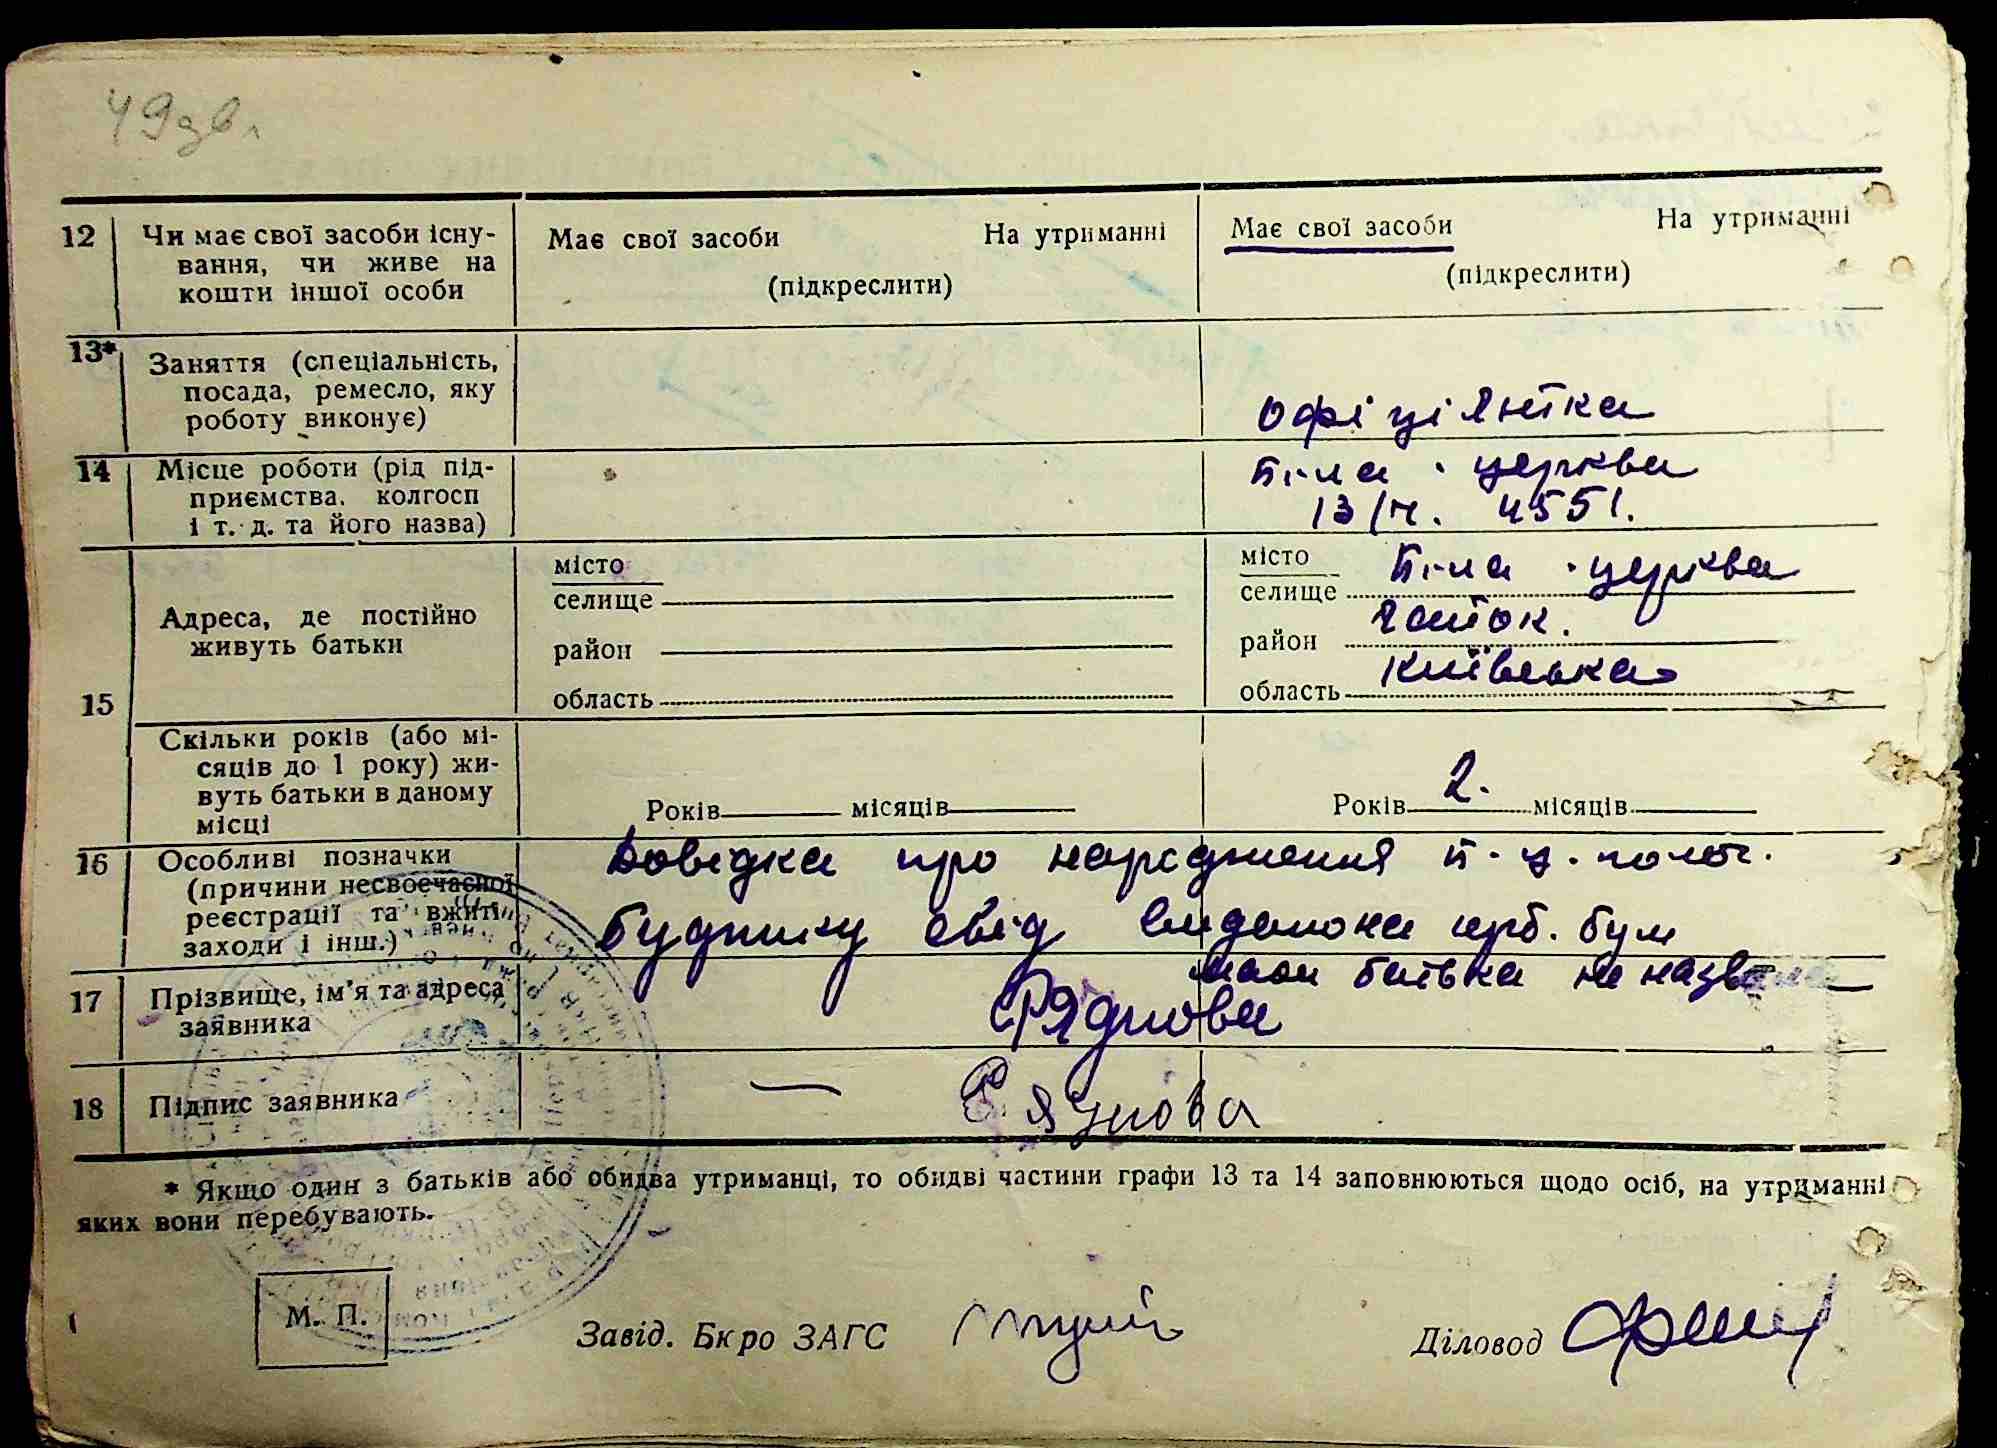 49зв.
12 Чи має свої засоби існу-
вання, чи живе на
кошти іншої особи
Має свої засоби На утриманні
(підкреслити)
Має свої засоби На утриманні
(підкреслити)
13* Заняття (спеціальність,
посада, ремесло, яку
роботу виконує)
Офіціянтка
14 Місце роботи (рід під-
приємства, колгосп
і т. д. та його назва)
Біла-церква
4551.
15 Адреса, де постійно
живуть батьки
місто
селище
район
область
місто Біла-церква
селище
район
область Київська
Скільки років (або мі-
сяців до 1 року) жи-
вуть батьки в даному
місці
Років місяців
Років 2. місяців
16 Особливі позначки
(причини несвоєчасної
реєстрації та вжиті
заходи і інш.)
Довідка про народження б.ц. полог.
будинку свід
мати батька не назвала
17 Прізвище, ім'я та адреса
заявника
Ряднова
18 Підпис заявника
— Ряднова
* Якщо один з батьків або обидва утриманці, то обидві частини графи 13 та 14 заповнюються щодо осіб, на утриманні
яких вони перебувають.
М. П.
Завід. Бюро ЗАГС
Діловод